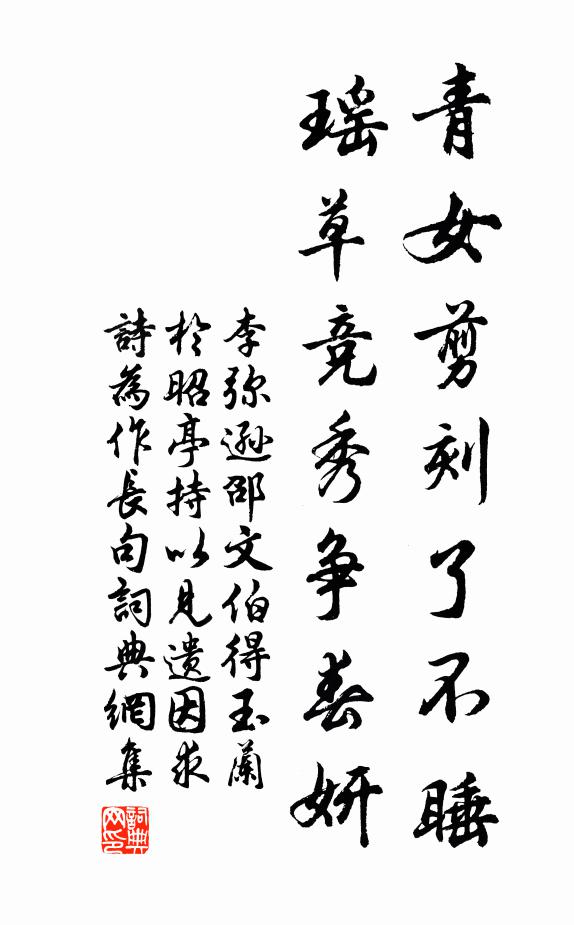 青女剪刻了不睡
瑶草竞秀争春妍
李弥逊邵文伯得玉蘭
於昭亭持以見遗因求
詩為作長句詞典網集
詞典
网印